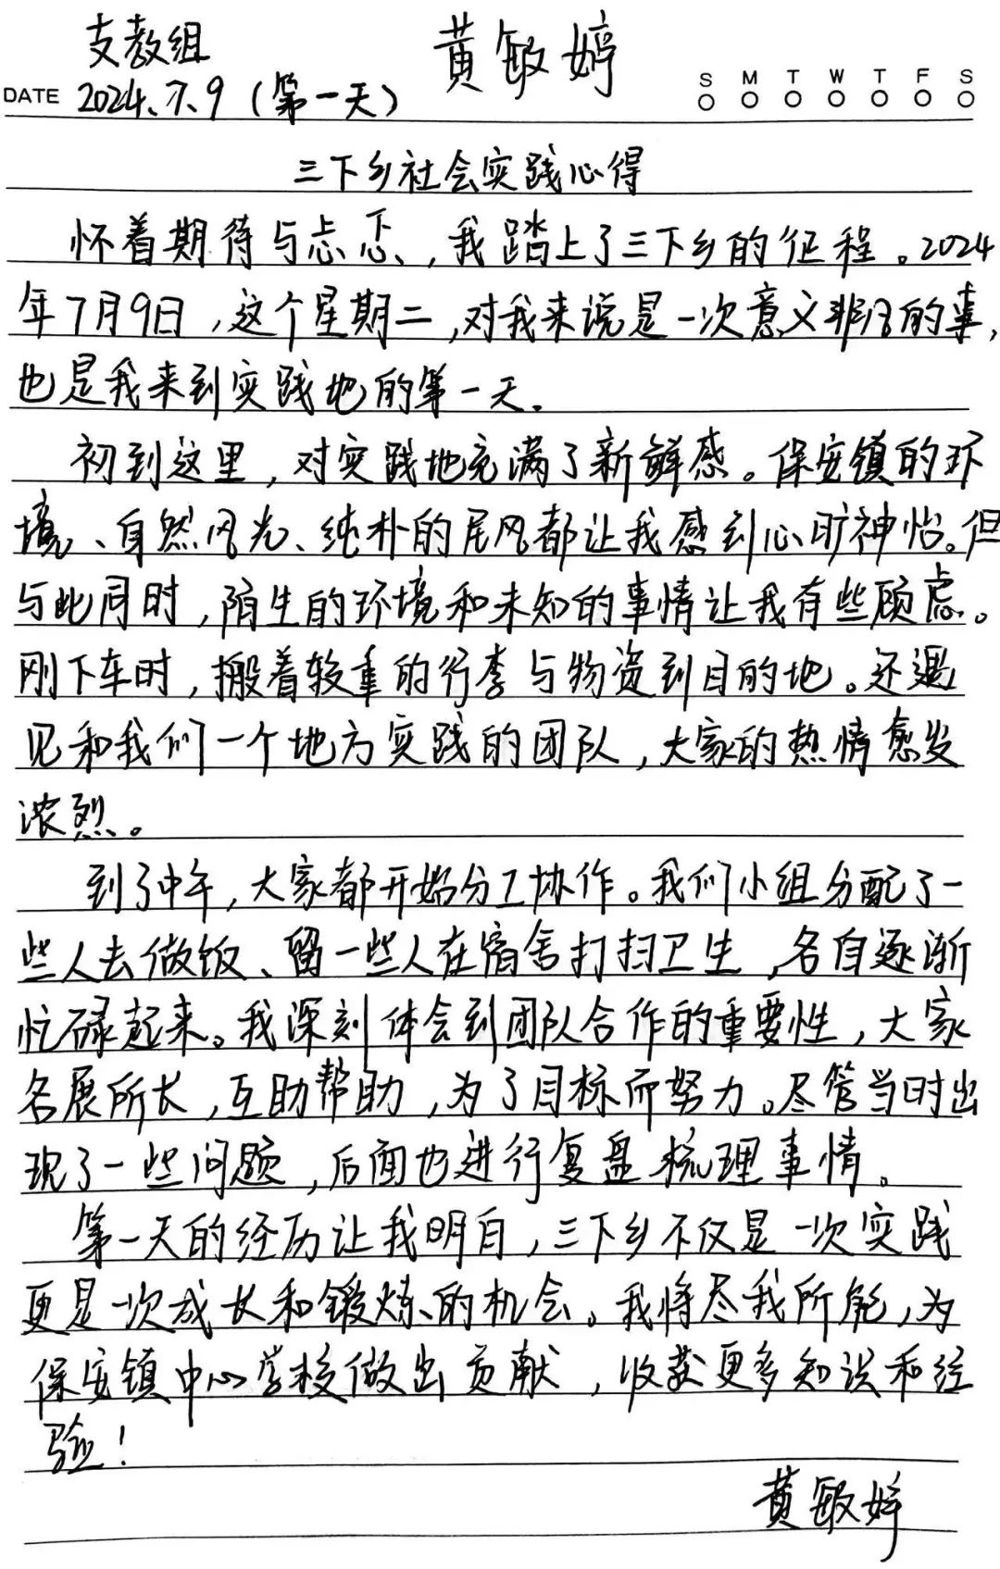 支教组 黄敏婷
DATE 2024.7.9（第一天） S M T W T F S
三下乡社会实践心得
怀着期待与忐忑，我踏上了三下乡的征程。2024
年7月9日，这个星期二，对我来说是一次意义非凡的事，
也是我来到实践地的第一天。
初到这里，对实践地充满了新鲜感。保安镇的环
境、自然风光、纯朴的民风都让我感到心旷神怡。但
与此同时，陌生的环境和未知的事情让我有些顾虑。
刚下车时，搬着较重的行李与物资到目的地。还遇
见和我们一个地方实践的团队，大家的热情愈发
浓烈。
到了中午，大家都开始分工协作。我们小组分配了一
些人去做饭、留一些人在宿舍打扫卫生，各自逐渐
忙碌起来。我深刻体会到团队合作的重要性，大家
各展所长，互助帮助，为了目标而努力。尽管当时出
现了一些问题，后面也进行复盘梳理事情。
第一天的经历让我明白，三下乡不仅是一次实践
更是一次成长和锻炼的机会。我将尽我所能，为
保安镇中心学校做出贡献，收获更多知识和经
验！
黄敏婷